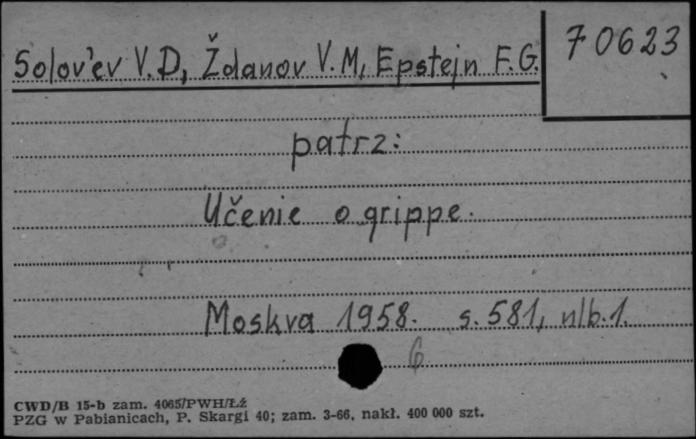 70623
Solov'ev V.D, Ždanov V.M, Epstejn F.G.
patrz:
Učenie o grippe.
Moskva 1958. s. 581, nlb. 1.
6
CWD/B 15-b zam. 4065/PWH/Łź
PZG w Pabianicach, P. Skargi 40; zam. 3-66, nakł. 400 000 szt.